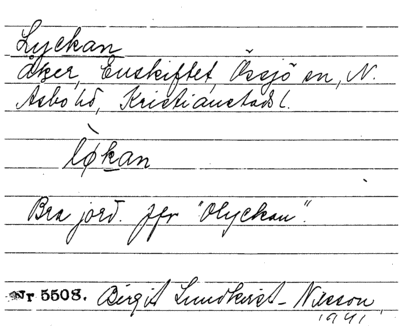 Lyckan
åker, Enskiftet, Össjö sn, N.
Asbo hd, Kristianstads l.
l̀økan
Bra jord. Jfr "Olyckan".
Nr 5508. Birgit Lundkvist-Nilsson
1941